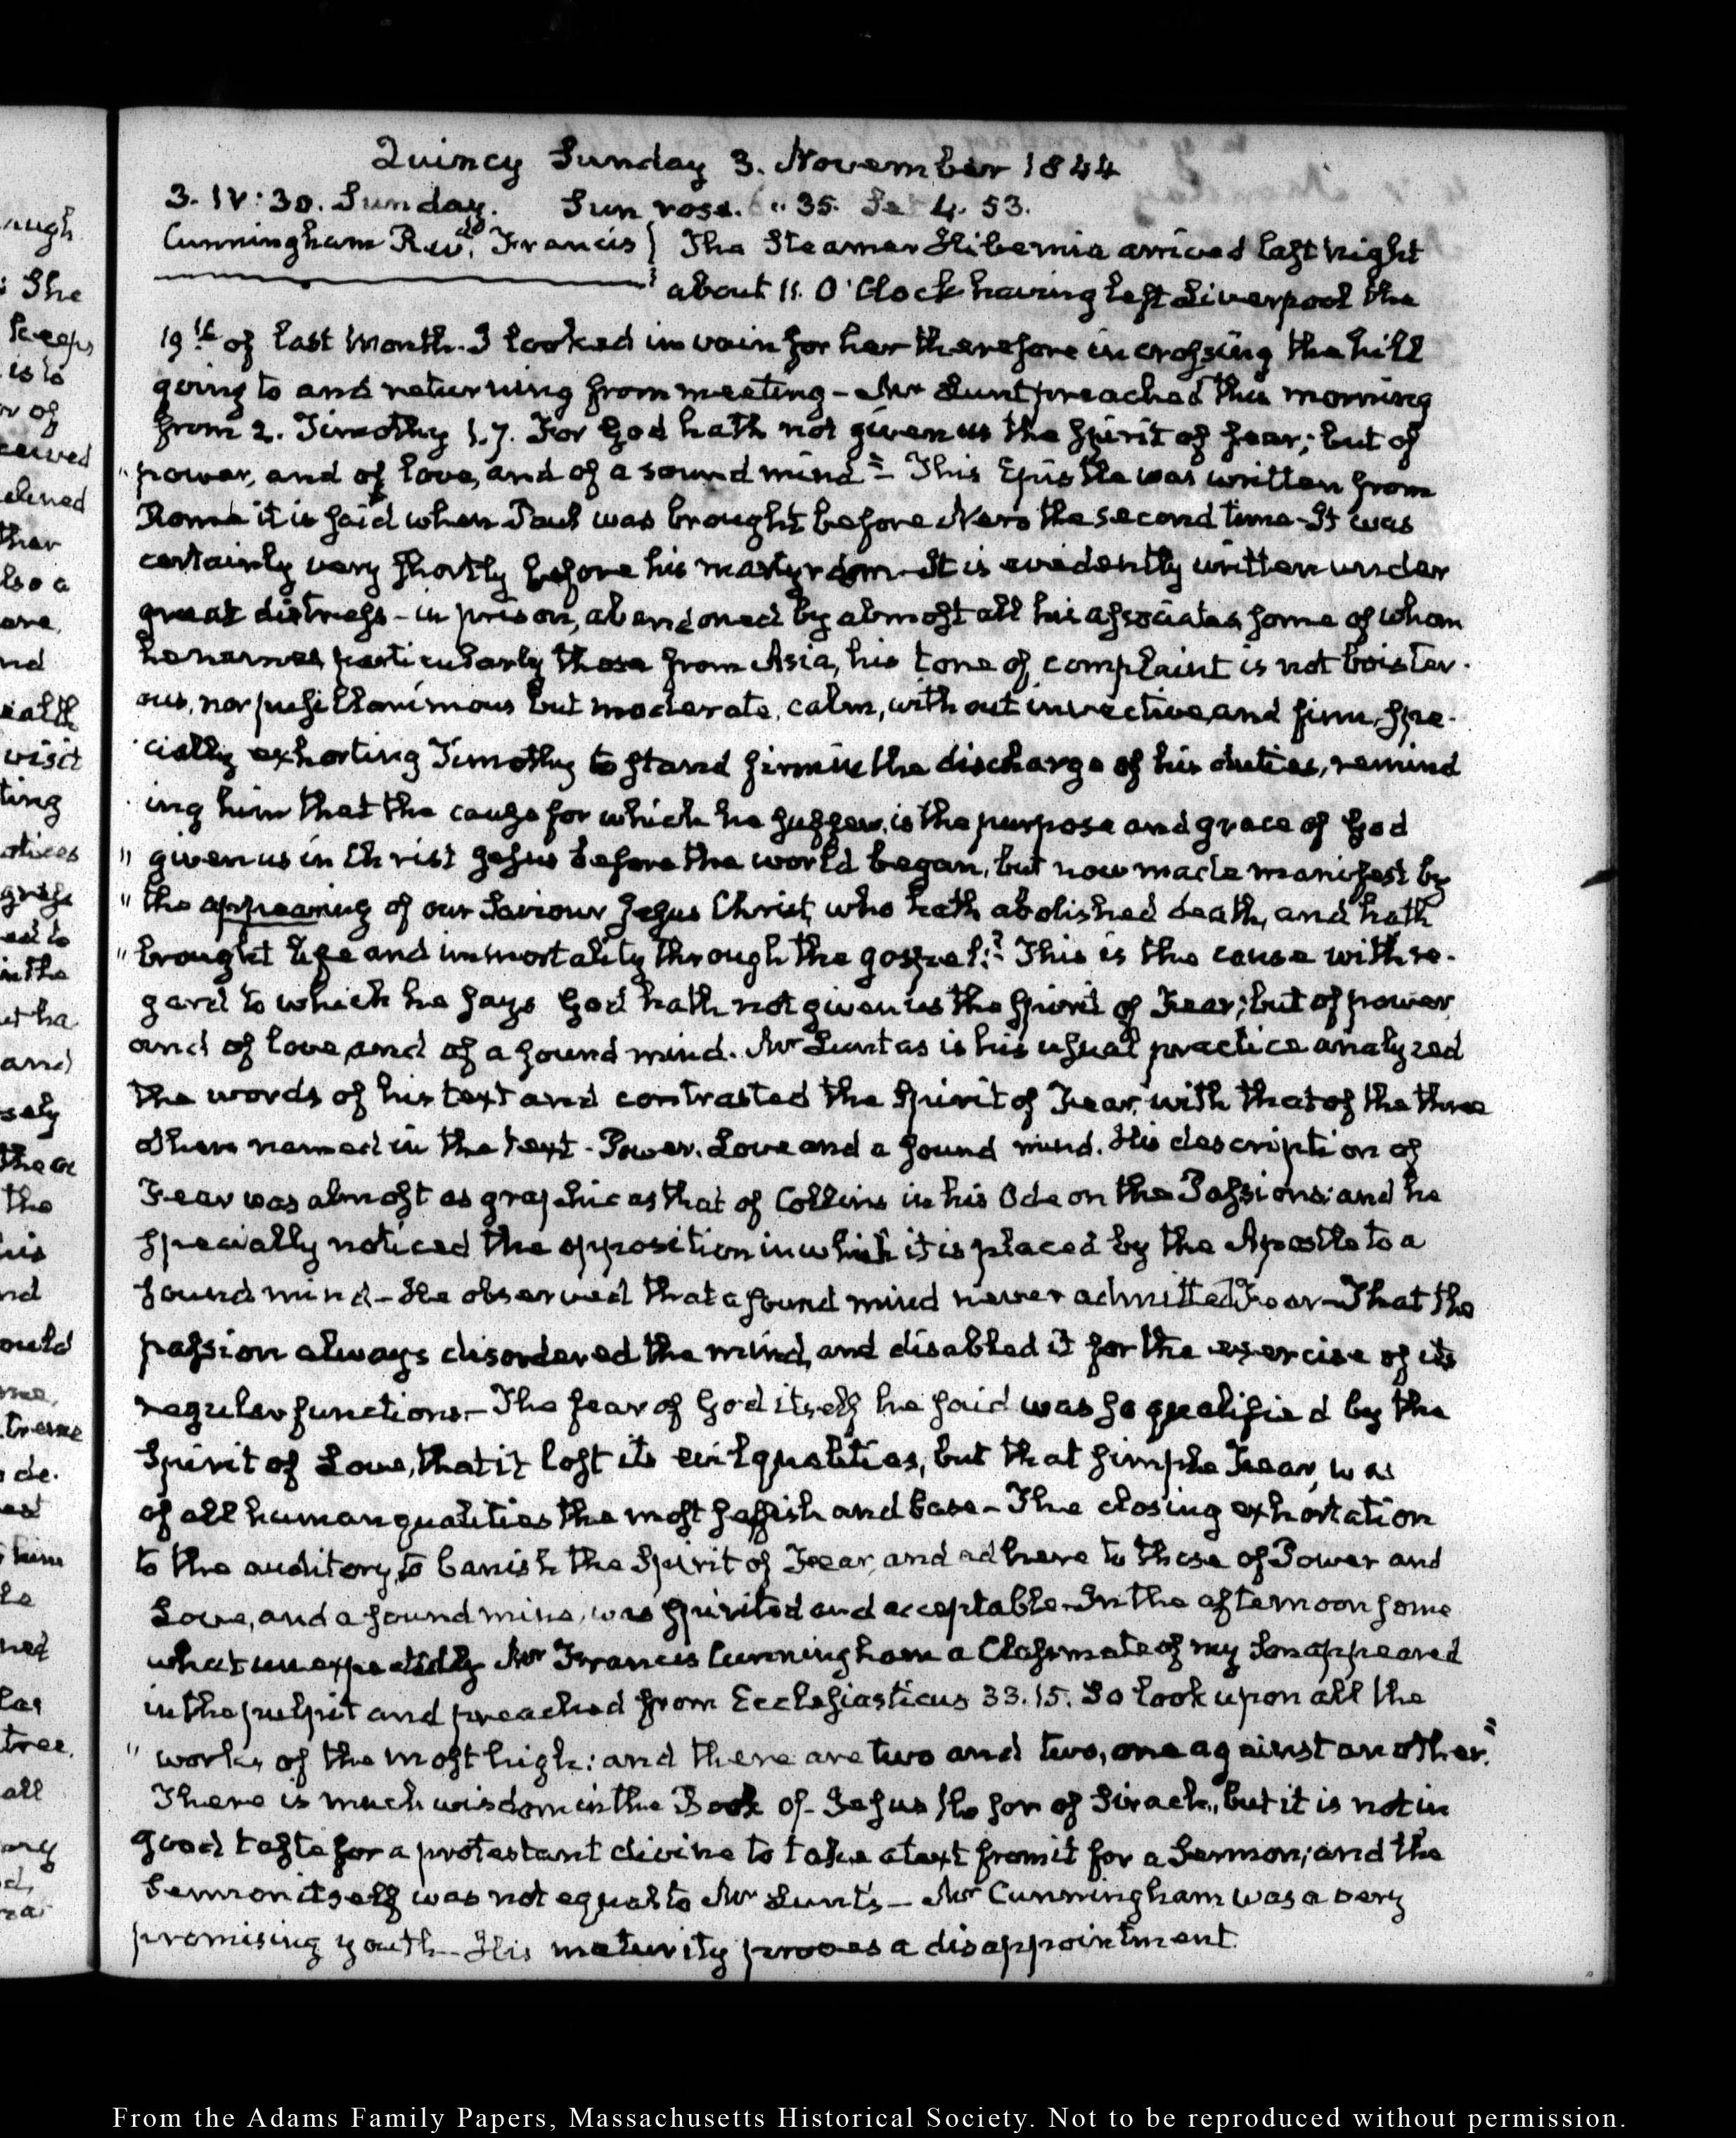 Quincy Sunday 3. November 1844
3. IV:30. Sunday. Sun rose. 6 " 35. Set 4. 53.
Cunningham Revd. Francis } The Steamer Hibernia arrived last Night
about 11. O'Clock having left Liverpool the
19th of last Month. I looked in vain for her therefore in crossing the hill
going to and returning from meeting – Mr Lunt preached this morning
from 2. Timothy 1.7. For God hath not given us the Spirit of fear; but of
" power, and of love, and of a sound mind" – This Epistle was written from
Rome it is said when Paul was brought before Nero the second time – It was
certainly very shortly before his martyrdom – It is evidently written under
great distress – in prison, abandoned by almost all his associates some of whom
he names particularly those from Asia, his tone of complaint is not boister-
ous, nor pusillanimous but moderate, calm, without invective, and firm, spe-
cially exhorting Timothy to stand firm in the discharge of his duties, remind
ing him that the cause for which he suffers, is the purpose and grace of God
" given us in Christ Jesus before the world began, but now made manifest by
" the appearing of our Saviour Jesus Christ, who hath abolished death, and hath
" brought life and immortality through the gospel:" This is the cause with re-
gard to which he says God hath not given us the Spirit of Fear; but of power
and of love, and of a sound mind. Mr Lunt as is his usual practice analyzed
the words of his text and contrasted the Spirit of Fear, with that of the three
others named in the text - Power, Love and a sound mind. His description of
Fear was almost as graphic as that of Collins in his Ode on the Passions; and he
specially noticed the opposition in which it is placed by the Apostle to a
sound mind – He observed that a sound mind never admitted Fear – That the
passion always disordered the mind, and disabled it for the exercise of its
regular functions. – The fear of God itself he said was so qualified by the
Spirit of Love, that it lost its evil qualities, but that simple Fear, was
of all human qualities the most selfish and base – The closing exhortation
to the auditory, to banish the Spirit of Fear, and adhere to those of Power and
Love, and a sound mind, was spirited and acceptable – In the afternoon some
what unexpectedly Mr Francis Cunningham a Classmate of my Son appeared
in the pulpit and preached from Ecclesiasticus 33.15. So look upon all the
" works of the most high: and there are two and two, one against another."
There is much wisdom in the Book of Jesus the son of Sirach, but it is not in
good taste for a protestant divine to take a text from it for a Sermon; and the
Sermon itself was not equal to Mr Lunt's – Mr Cunningham was a very
promising youth – His maturity proves a disappointment.
From the Adams Family Papers, Massachusetts Historical Society. Not to be reproduced without permission.